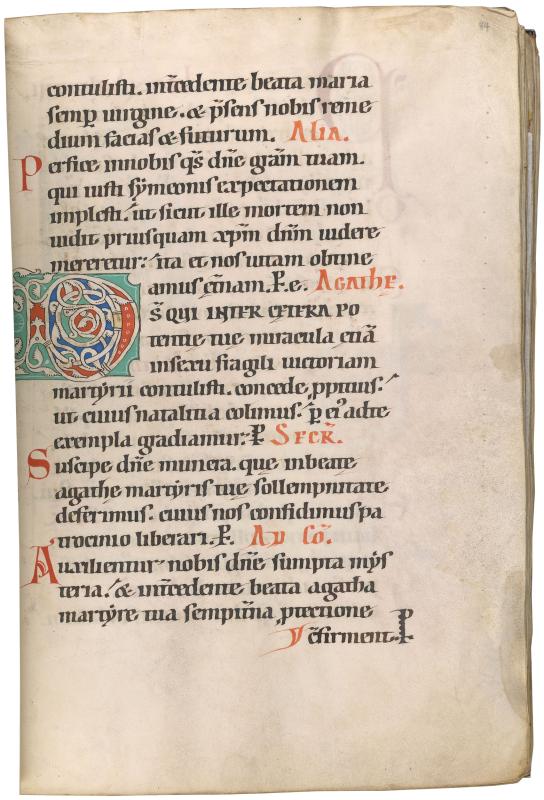 84
contulisti. int̄cedente beata maria
semp̱ uirgine. & p̄sens nobis reme
dium facias & futurum. Alia.
Perfice innobis qs̄ dn̄e grām tuam.
qui iusti sẏmeonis expectationem
implesti. ut sicut ille mortem non
uidit priusquam xp̄m dn̄m uidere
mereretur. ita et nos uitam obtine
amus et̄nam. P. e. Agathe.
Ds̄ QUI INTER CETERA PO
tentie tue miracula etiā
insexu fragili uictoriam
martẏrii contulisti. concede ppitius.
ut cuius natalitia colimus. p̱ eiꝰ adte
exempla gradiamur. P Secr̄.
Suscipe dn̄e munera. que inbeate
agathe martẏris tue sollempnitate
deferimus. cuius nos confidimus pa
trocinio liberari. P. Ad Cō.
Auxilientur nobis dn̄e sumpta mẏs
teria. & int̄cedente beata agatha
martẏre tua sempit̄na ptectione
c̄firment. P